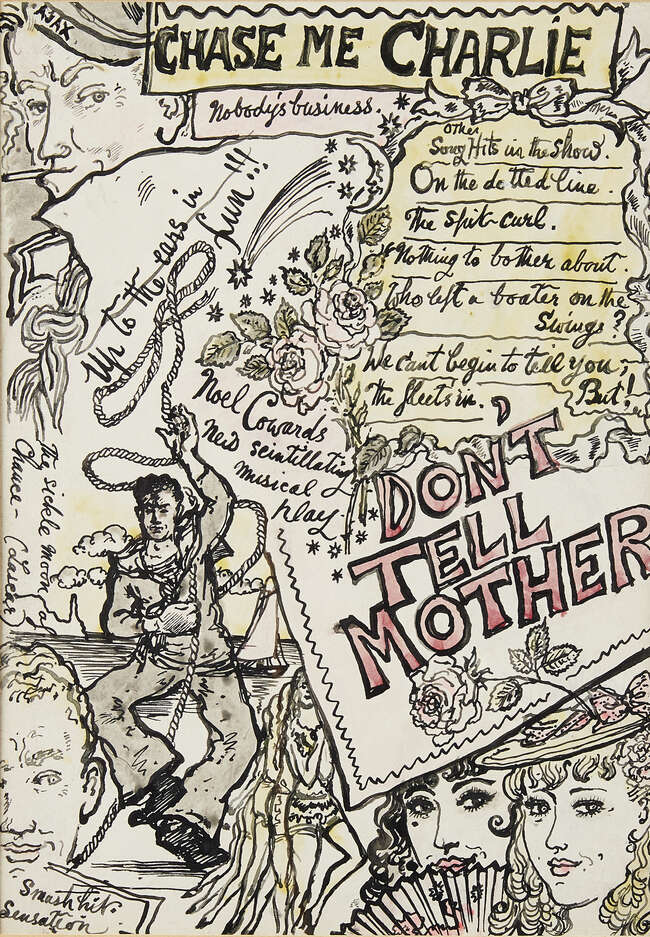 AJAX
CHASE ME CHARLIE
Nobody's business.
Up to the ears in
Fun!!!
Other
Song Hits in the show.
On the dotted line.
The spit-curl.
Nothing to bother about.
Who left a boater on the
Swings?
We cant begin to tell you,
the fleets in. But!
Noel Cowards
New scintillating
musical
play
DON'T
TELL
MOTHER
The sickle moon of
Chance -
Smash hit.
Sensation